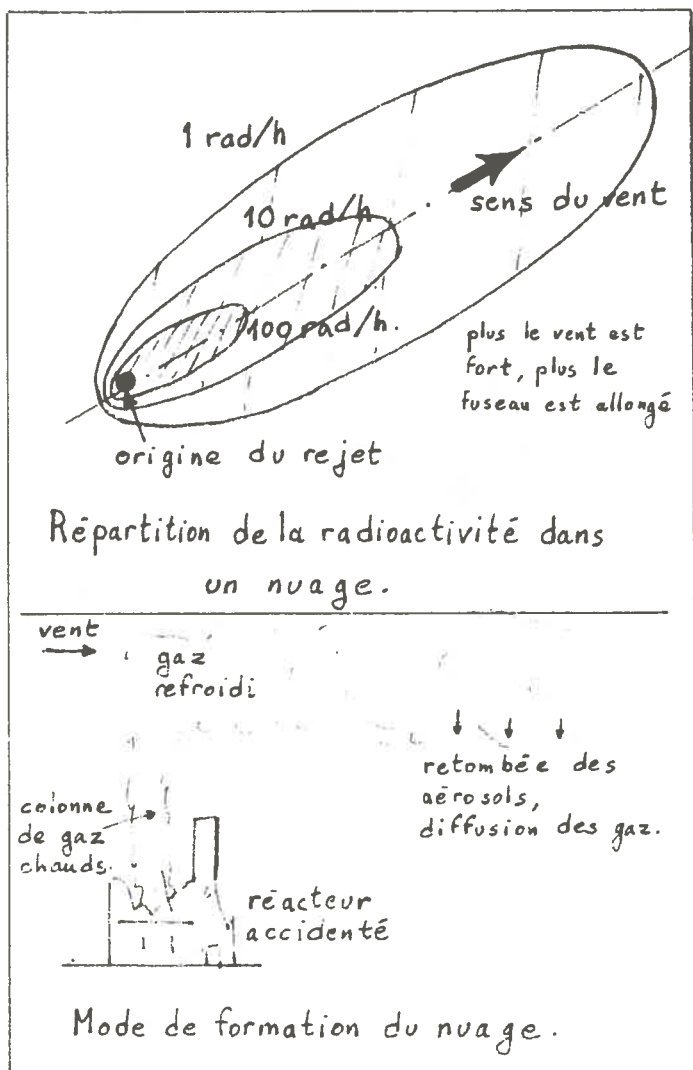 1 rad/h
10 rad/h
sens du vent
100 rad/h.
plus le vent est
fort, plus le
fuseau est allongé
origine du rejet
Répartition de la radioactivité dans
un nuage.
vent
gaz
refroidi
retombée des
aérosols,
diffusion des gaz.
colonne
de gaz
chauds.
réacteur
accidenté
Mode de formation du nuage.